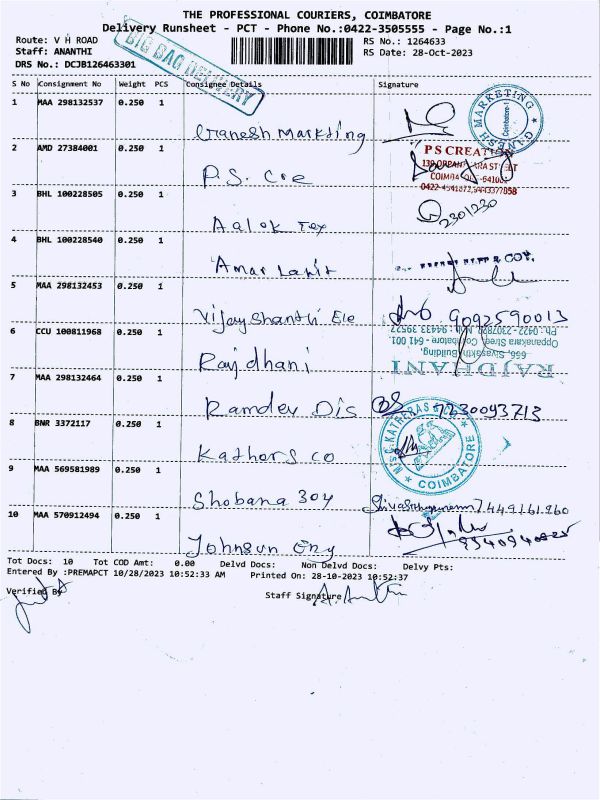 THE PROFESSIONAL COURIERS, COIMBATORE
Delivery Runsheet - PCT - Phone No.:0422-3505555 - Page No.:1
Route: V H ROAD
Staff: ANANTHI
DRS No.: DCJB126463301
BIG BAG DELIVERY
RS No.: 1264633
RS Date: 28-Oct-2023
S No Consignment No Weight PCS Consignee Details Signature
1 MAA 298132537 0.250 1
Ganesh Markting
MARKETING GANESH Coimbatore-1
2 AMD 27384001 0.250 1
P.S. Cre
P S CREATION
COIMBATORE-641001
3 BHL 100228505 0.250 1
Aalok Tex
2301230
4 BHL 100228540 0.250 1
Amar Lahit
& COY.
5 MAA 298132453 0.250 1
Vijay Shanthi Ele
9092590013
6 CCU 100811968 0.250 1
Rajdhani
RAJDHANI
656, Sivasakthi Building,
Oppanakara Street, Coimbatore - 641 001.
7 MAA 298132464 0.250 1
Ramdev Dis
7230093713
8 BNR 3372117 0.250 1
Kathors co
COIMBATORE
9 MAA 569581989 0.250 1
Shobana 304
7449161260
10 MAA 570912494 0.250 1
Johnson Eng
Tot Docs: 10 Tot COD Amt: 0.00 Delvd Docs: Non Delvd Docs: Delvy Pts:
Entered By :PREMAPCT 10/28/2023 10:52:33 AM Printed On: 28-10-2023 10:52:37
Verified By
Staff Signature
A. Ananthi